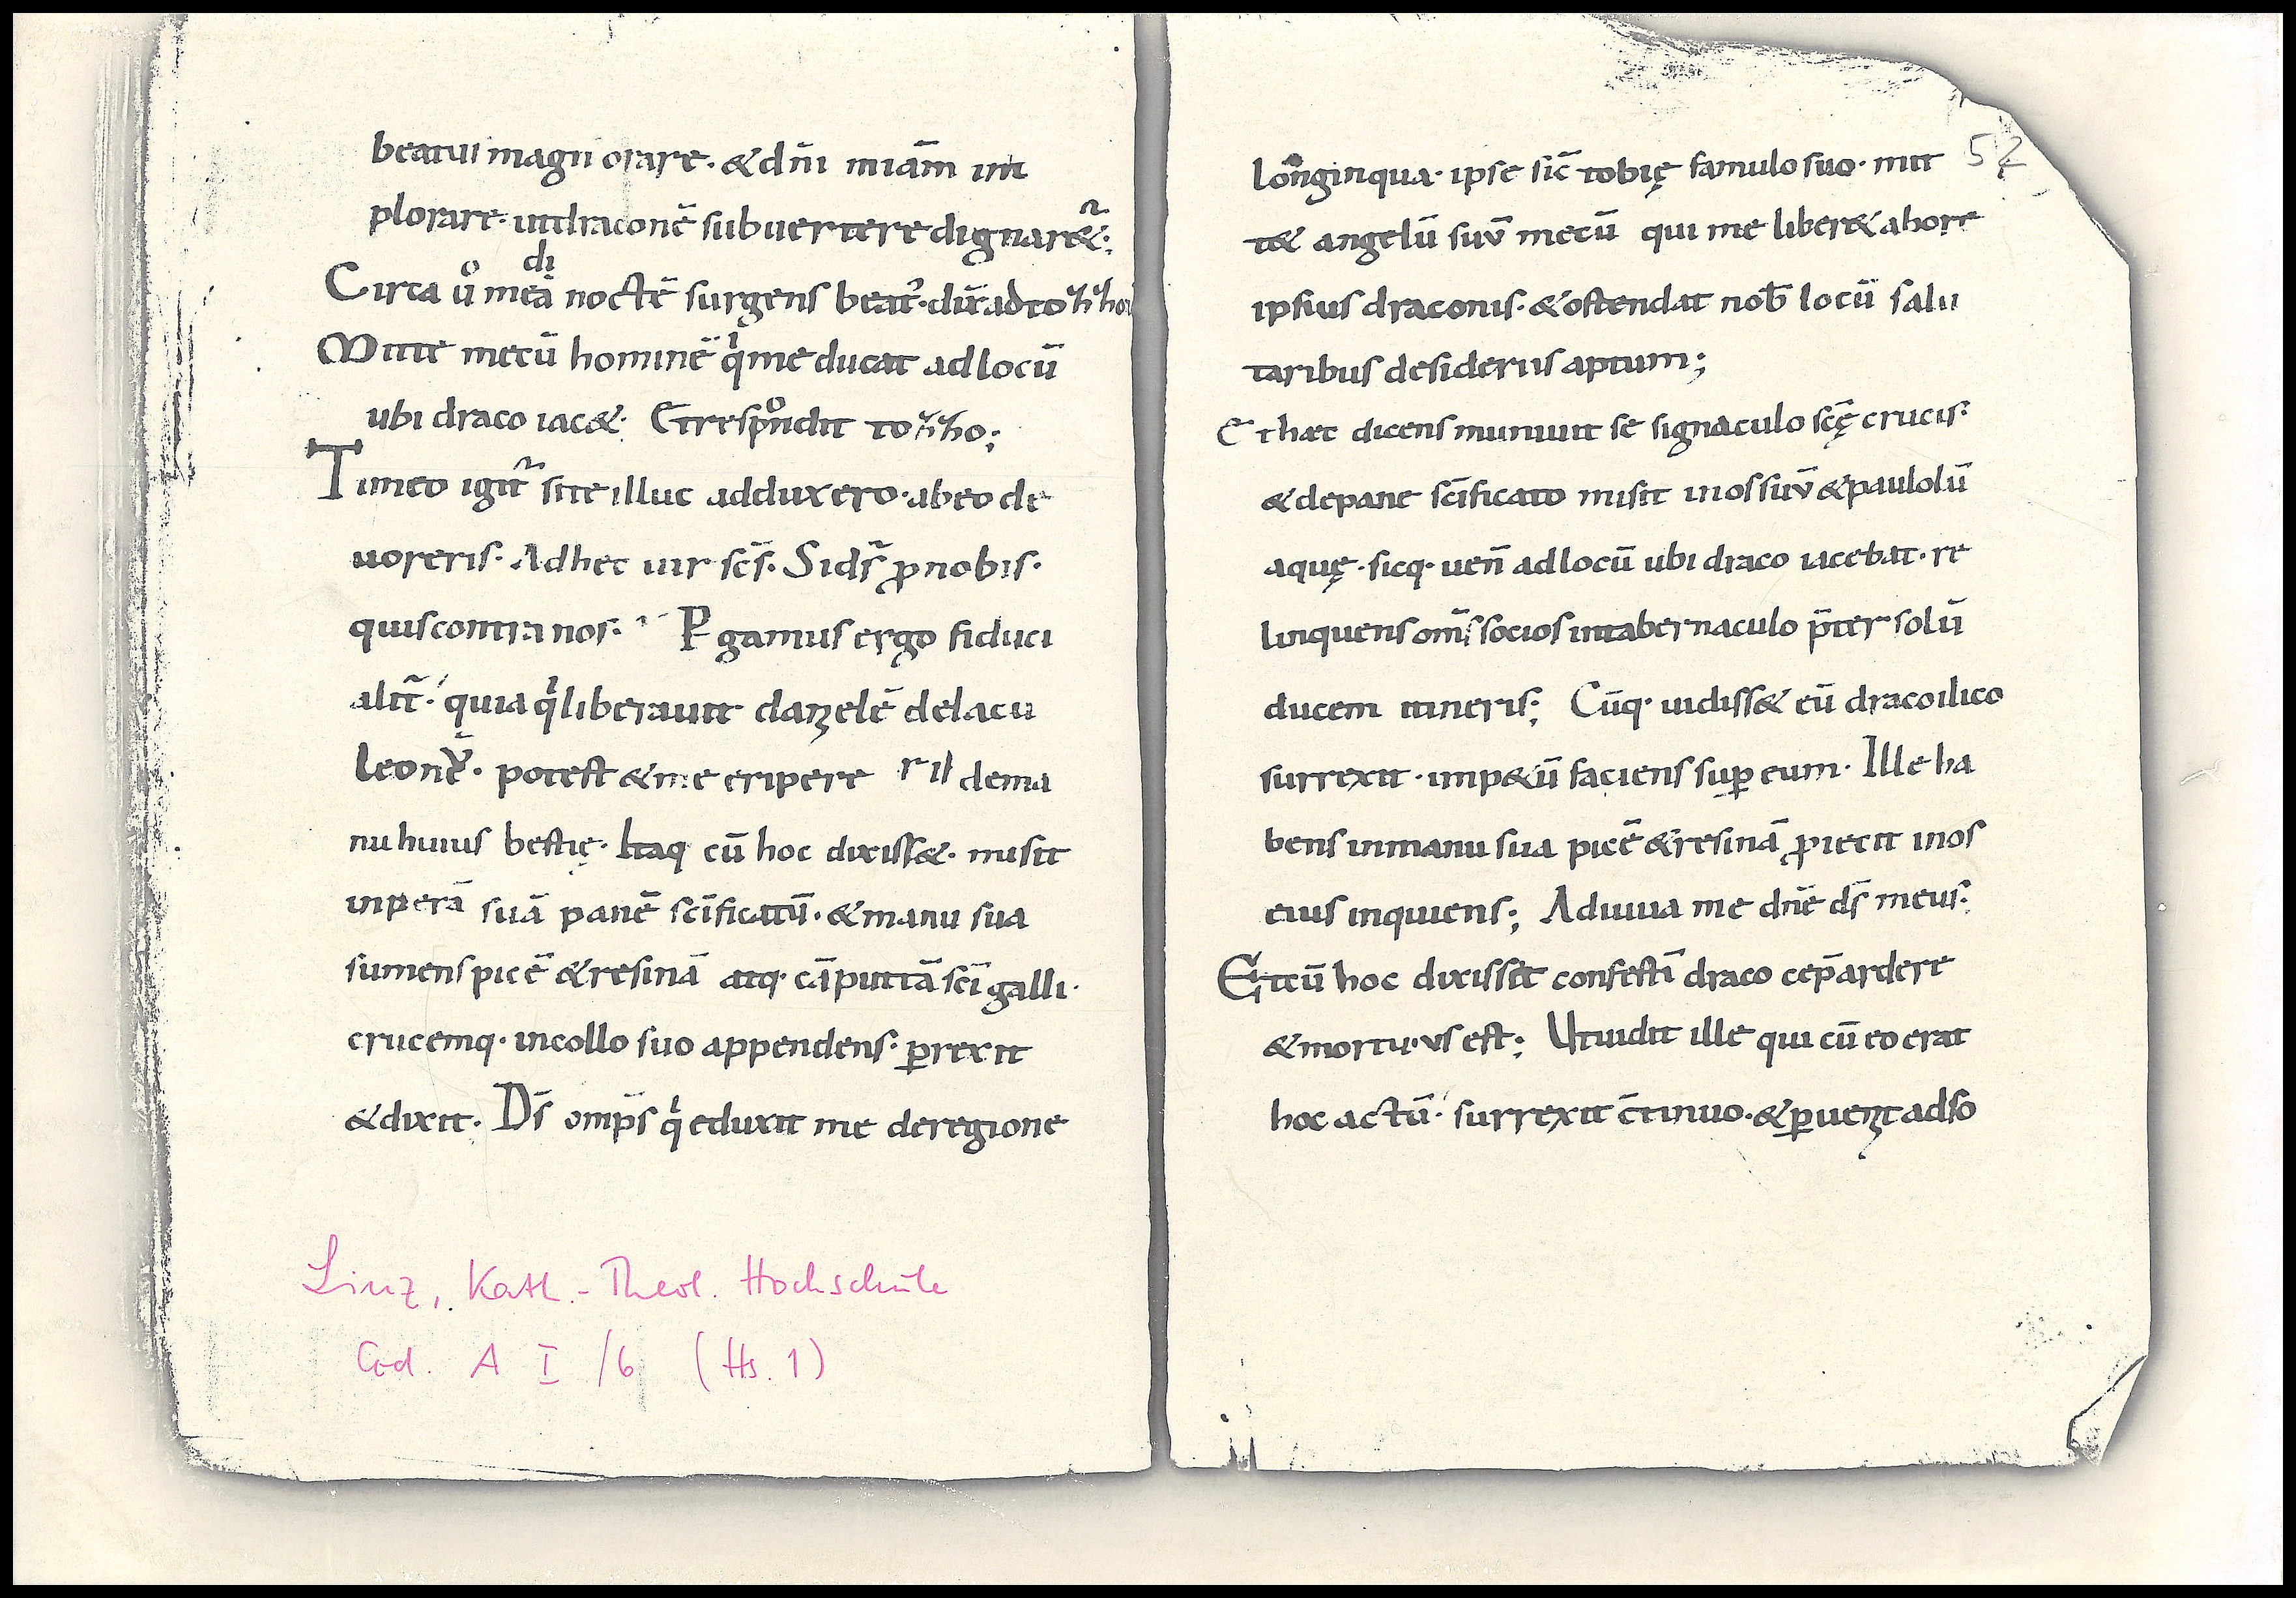 beatus magn orare. & dn̄i miām im
plorare. utdraconē subuertere dignar&̃;
Circa ů meā noctē surgens beat᷒. dix̄ ad tozzho
di
Mitte mecū hominē qͥ me ducat ad locū
ubi draco iac&. Et respondit tozzho;
Timeo igit̃ si te illuc adduxero. ab eo de
uoreris. Ad hec uir sc̄s. Si ds̄ ꝓ nobis.
quis contra nos. Pgamus ergo fiduci
alit̃. quia qͥ liberauit danielē de lacu
leonū. potest & me eripere de ma
nu huius bestię. Itaq cū hoc dixiss&. misit
in perā suā panē sc̄ificatū. & manu sua
sumens picē & resinā atq. cāputtā sc̄i galli.
crucemq. in collo suo appendens. ꝑrexit
& dixit. Ds̄ omp̄s qͥ eduxit me de regione
52
longinqua. ipse sic̄ tobię famulo suo. mit
t& angelū suū mecū qui me liber& ab ore
ipsius draconis. & ostendat nob̄ locū salu
taribus desideriis aptum;
Et hæc dicens muniuit se signaculo sc̄ę crucis.
& de pane sc̄ificato misit in os suū & paulolū
aquę. sicq. uen̄ ad locū ubi draco iacebat. re
linquens om̄s socios in tabernaculo p̄ter solū
ducem itineris; Cūq. uidiss& eū draco ilico
surrexit. imp&ū faciens suꝑ eum. Ille ha
bens in manu sua picē & resinā ꝓiecit in os
eius inquiens; Adiuua me dn̄e ds̄ meus.
Et cū hoc dixissèt confestī draco cep̄ ardere
& mortuus est; Ut uidit ille qui cū eo erat
hoc actū. surrexit c̄tinuo. & ꝑuenit ad so
Linz, Kath.-Theol. Hochschule
Cod. A I /6 (Hs. 1)